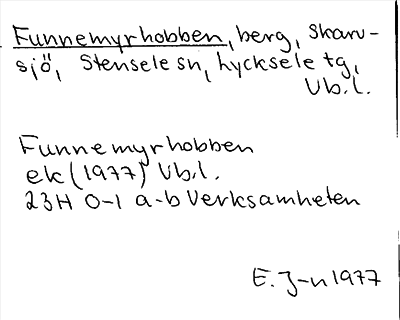 Funnemyrhobben, berg, Skarv-
sjö, Stensele sn, Lycksele tg,
Vb.l.
Funnemyrhobben
ek (1977) Vb.l.
23H 0-1 a-b Verksamheten
E. J-n 1977